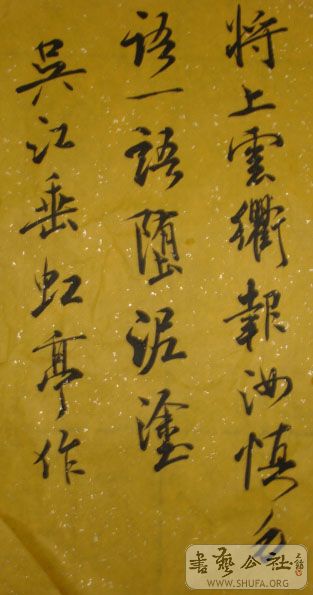 將上雲衢報汝慎勿
語一語墮泥塗
吳江垂虹亭作
書藝公社
WWW.SHUFA.ORG